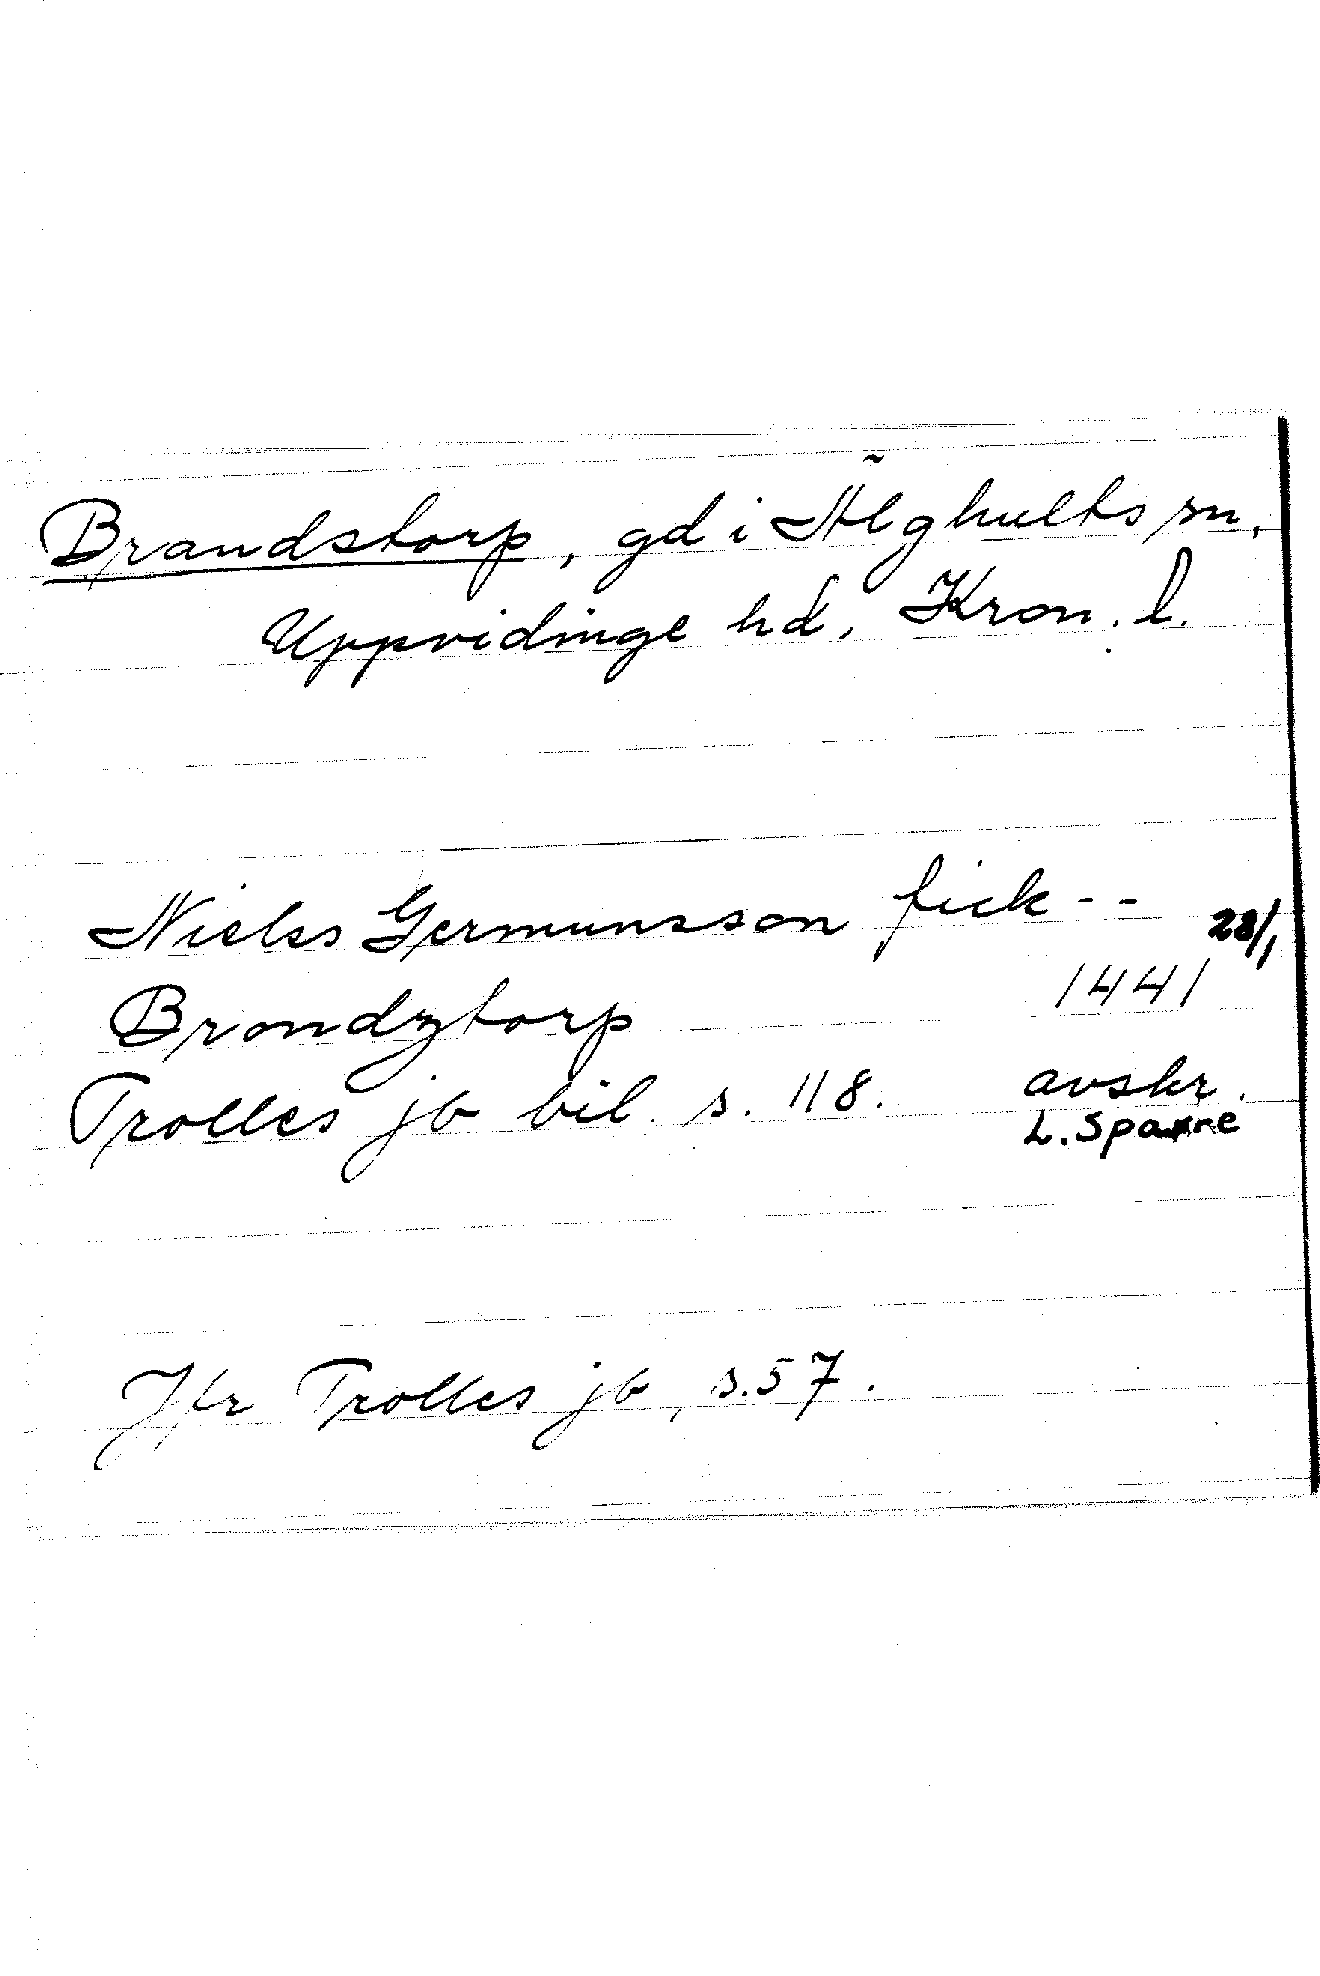 Brandstorp, gd i Älghults sn,
Uppvidinge hd, Kron. l.
Nielss Germunsson fick -- 28/1
Brondztorp 1441
Trolles jb bil. s. 118. avskr.
L. Sparre
Jfr Trolles jb, s. 57.